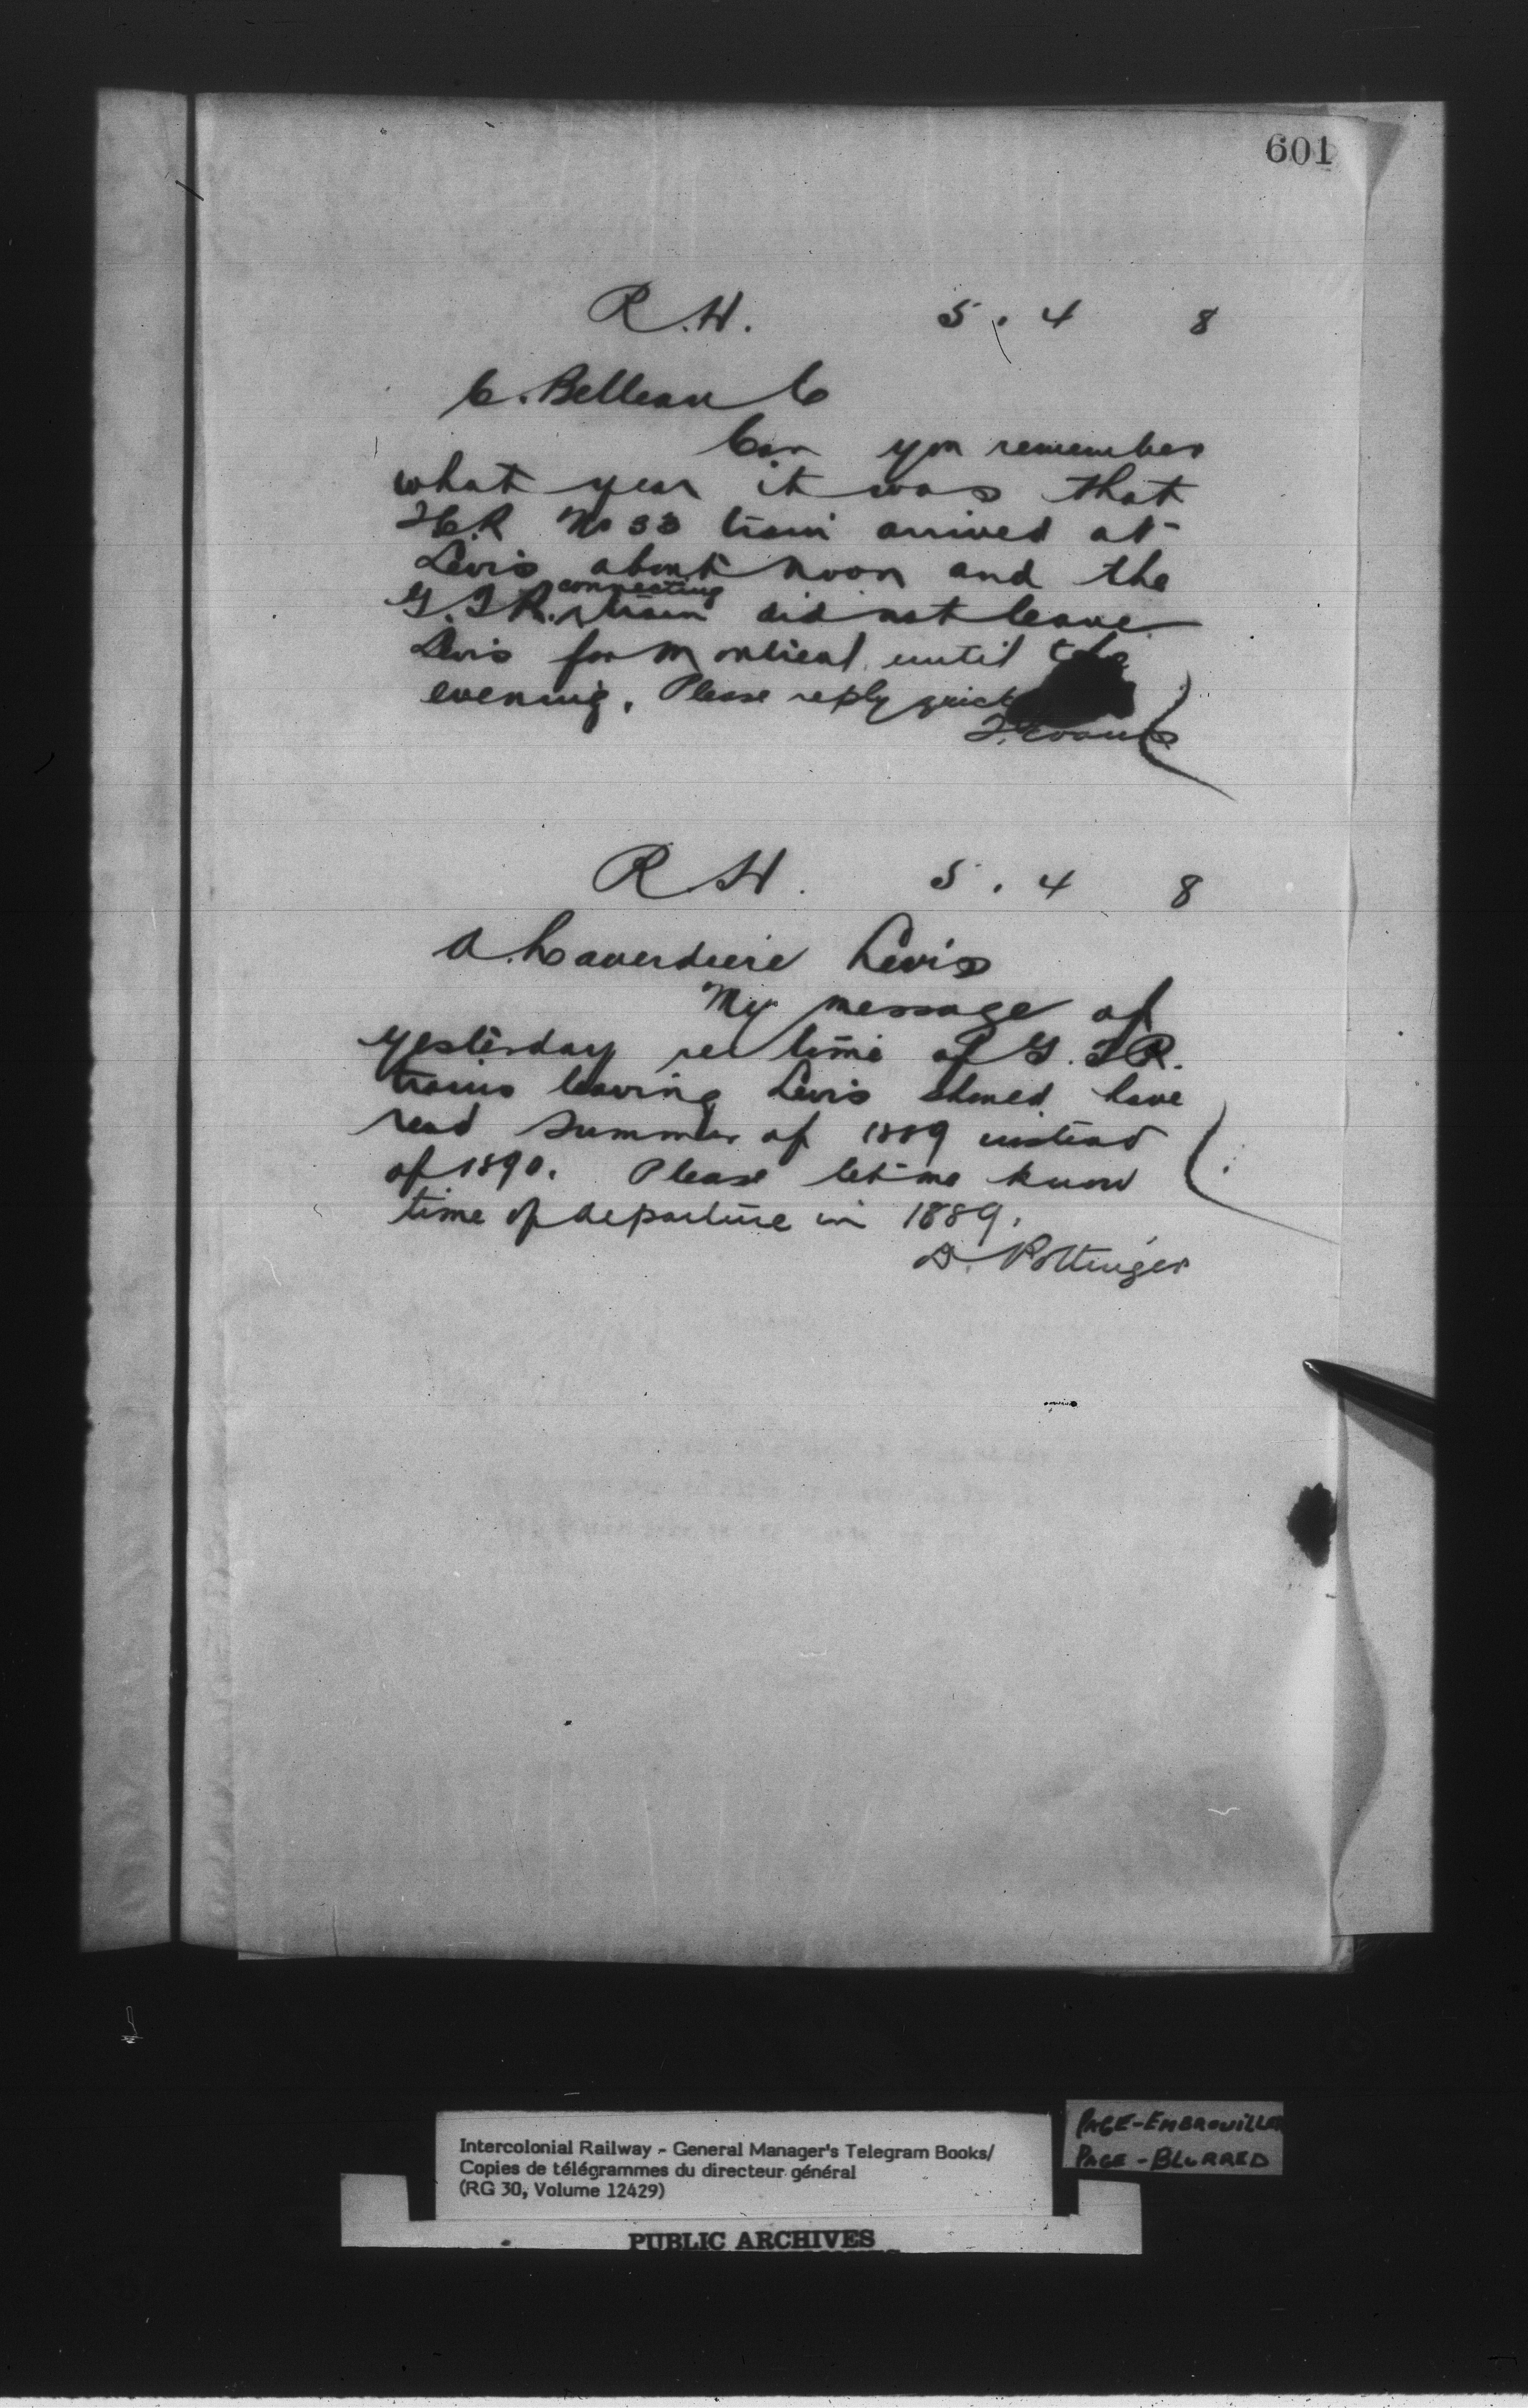 601
R.H. 5. 4 8
C. Belleau C
Can you remember
what year it was that
ICR No 33 train arrived at
Levis about noon and the
connecting
G.T.R. train did not leave
Levis for Montreal until the
evening. Please reply
T. Evans
R.H. 5. 4 8
A. Laverdiere Levis
My message of
yesterday re time of G.T.R.
trains leaving Levis should have
read summer of 1889 instead
of 1890. Please let me know
time of departure in 1889.
D. Pottinger
Intercolonial Railway - General Manager's Telegram Books/
Copies de télégrammes du directeur général
(RG 30, Volume 12429)
PAGE-EMBROUILLER
PAGE-BLURRED
PUBLIC ARCHIVES